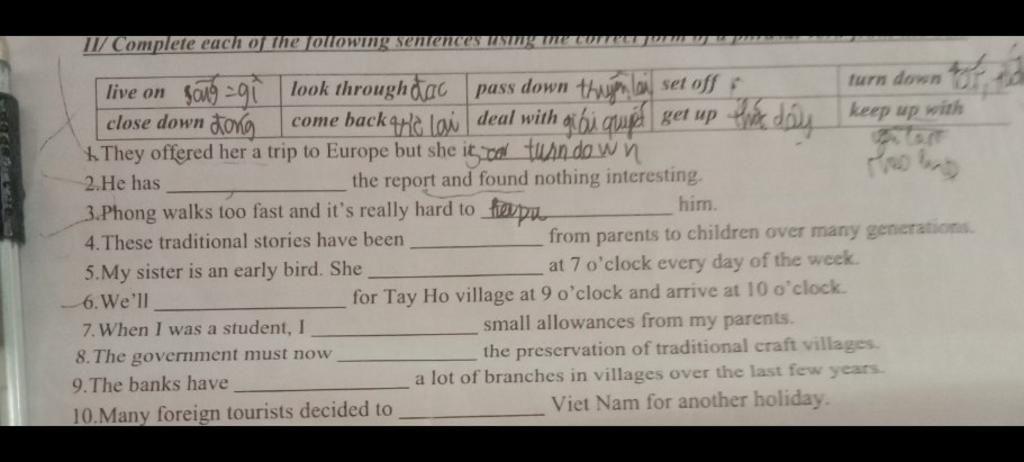 II/ Complete each of the following sentences using the correct form of a phrasal verb from the
live on sống = gì look through đọc pass down thuyền lại set off turn down từ
close down đóng come back trở lại deal with giải quyết get up thức dậy keep up with
theo
1.They offered her a trip to Europe but she is turn down
2.He has ____________ the report and found nothing interesting.
3.Phong walks too fast and it's really hard to ____________ him.
4.These traditional stories have been ____________ from parents to children over many generations.
5.My sister is an early bird. She ____________ at 7 o'clock every day of the week.
6.We'll ____________ for Tay Ho village at 9 o'clock and arrive at 10 o'clock.
7.When I was a student, I ____________ small allowances from my parents.
8.The government must now ____________ the preservation of traditional craft villages.
9.The banks have ____________ a lot of branches in villages over the last few years.
10.Many foreign tourists decided to ____________ Viet Nam for another holiday.